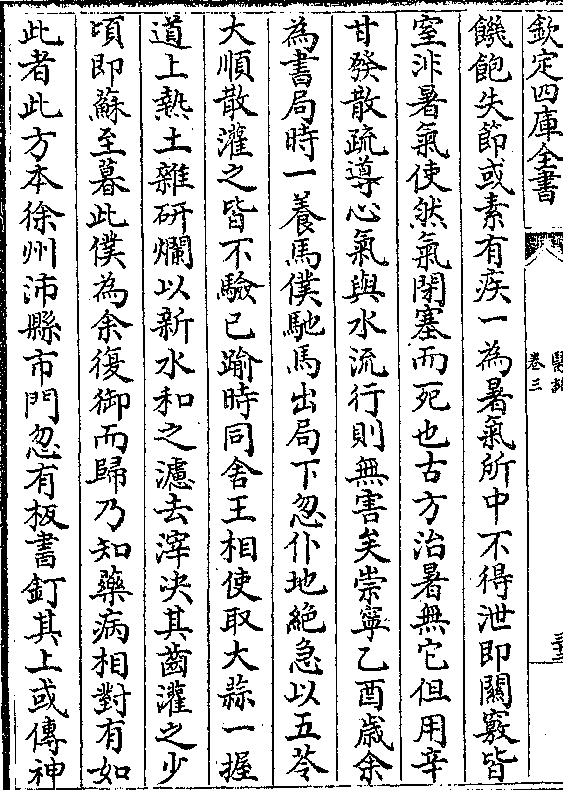 欽定四庫全書
卷三
饑飽失節或素有疾一為暑氣所中不得泄即關竅皆
窒非暑氣使然氣閉塞而死也古方治暑無它但用辛
甘發散疏導心氣與水流行則無害矣崇寧乙酉歳余
為書局時一養馬僕馳馬出局下忽仆地絶急以五苓
大順散灌之皆不驗已踰時同舍王相使取大蒜一握
道上熱土雜研爛以新水和之濾去滓决其齒灌之少
頃即蘇至暮此僕為余復御而歸乃知藥病相對有如
此者此方本徐州沛縣市門忽有板書釘其上或傳神